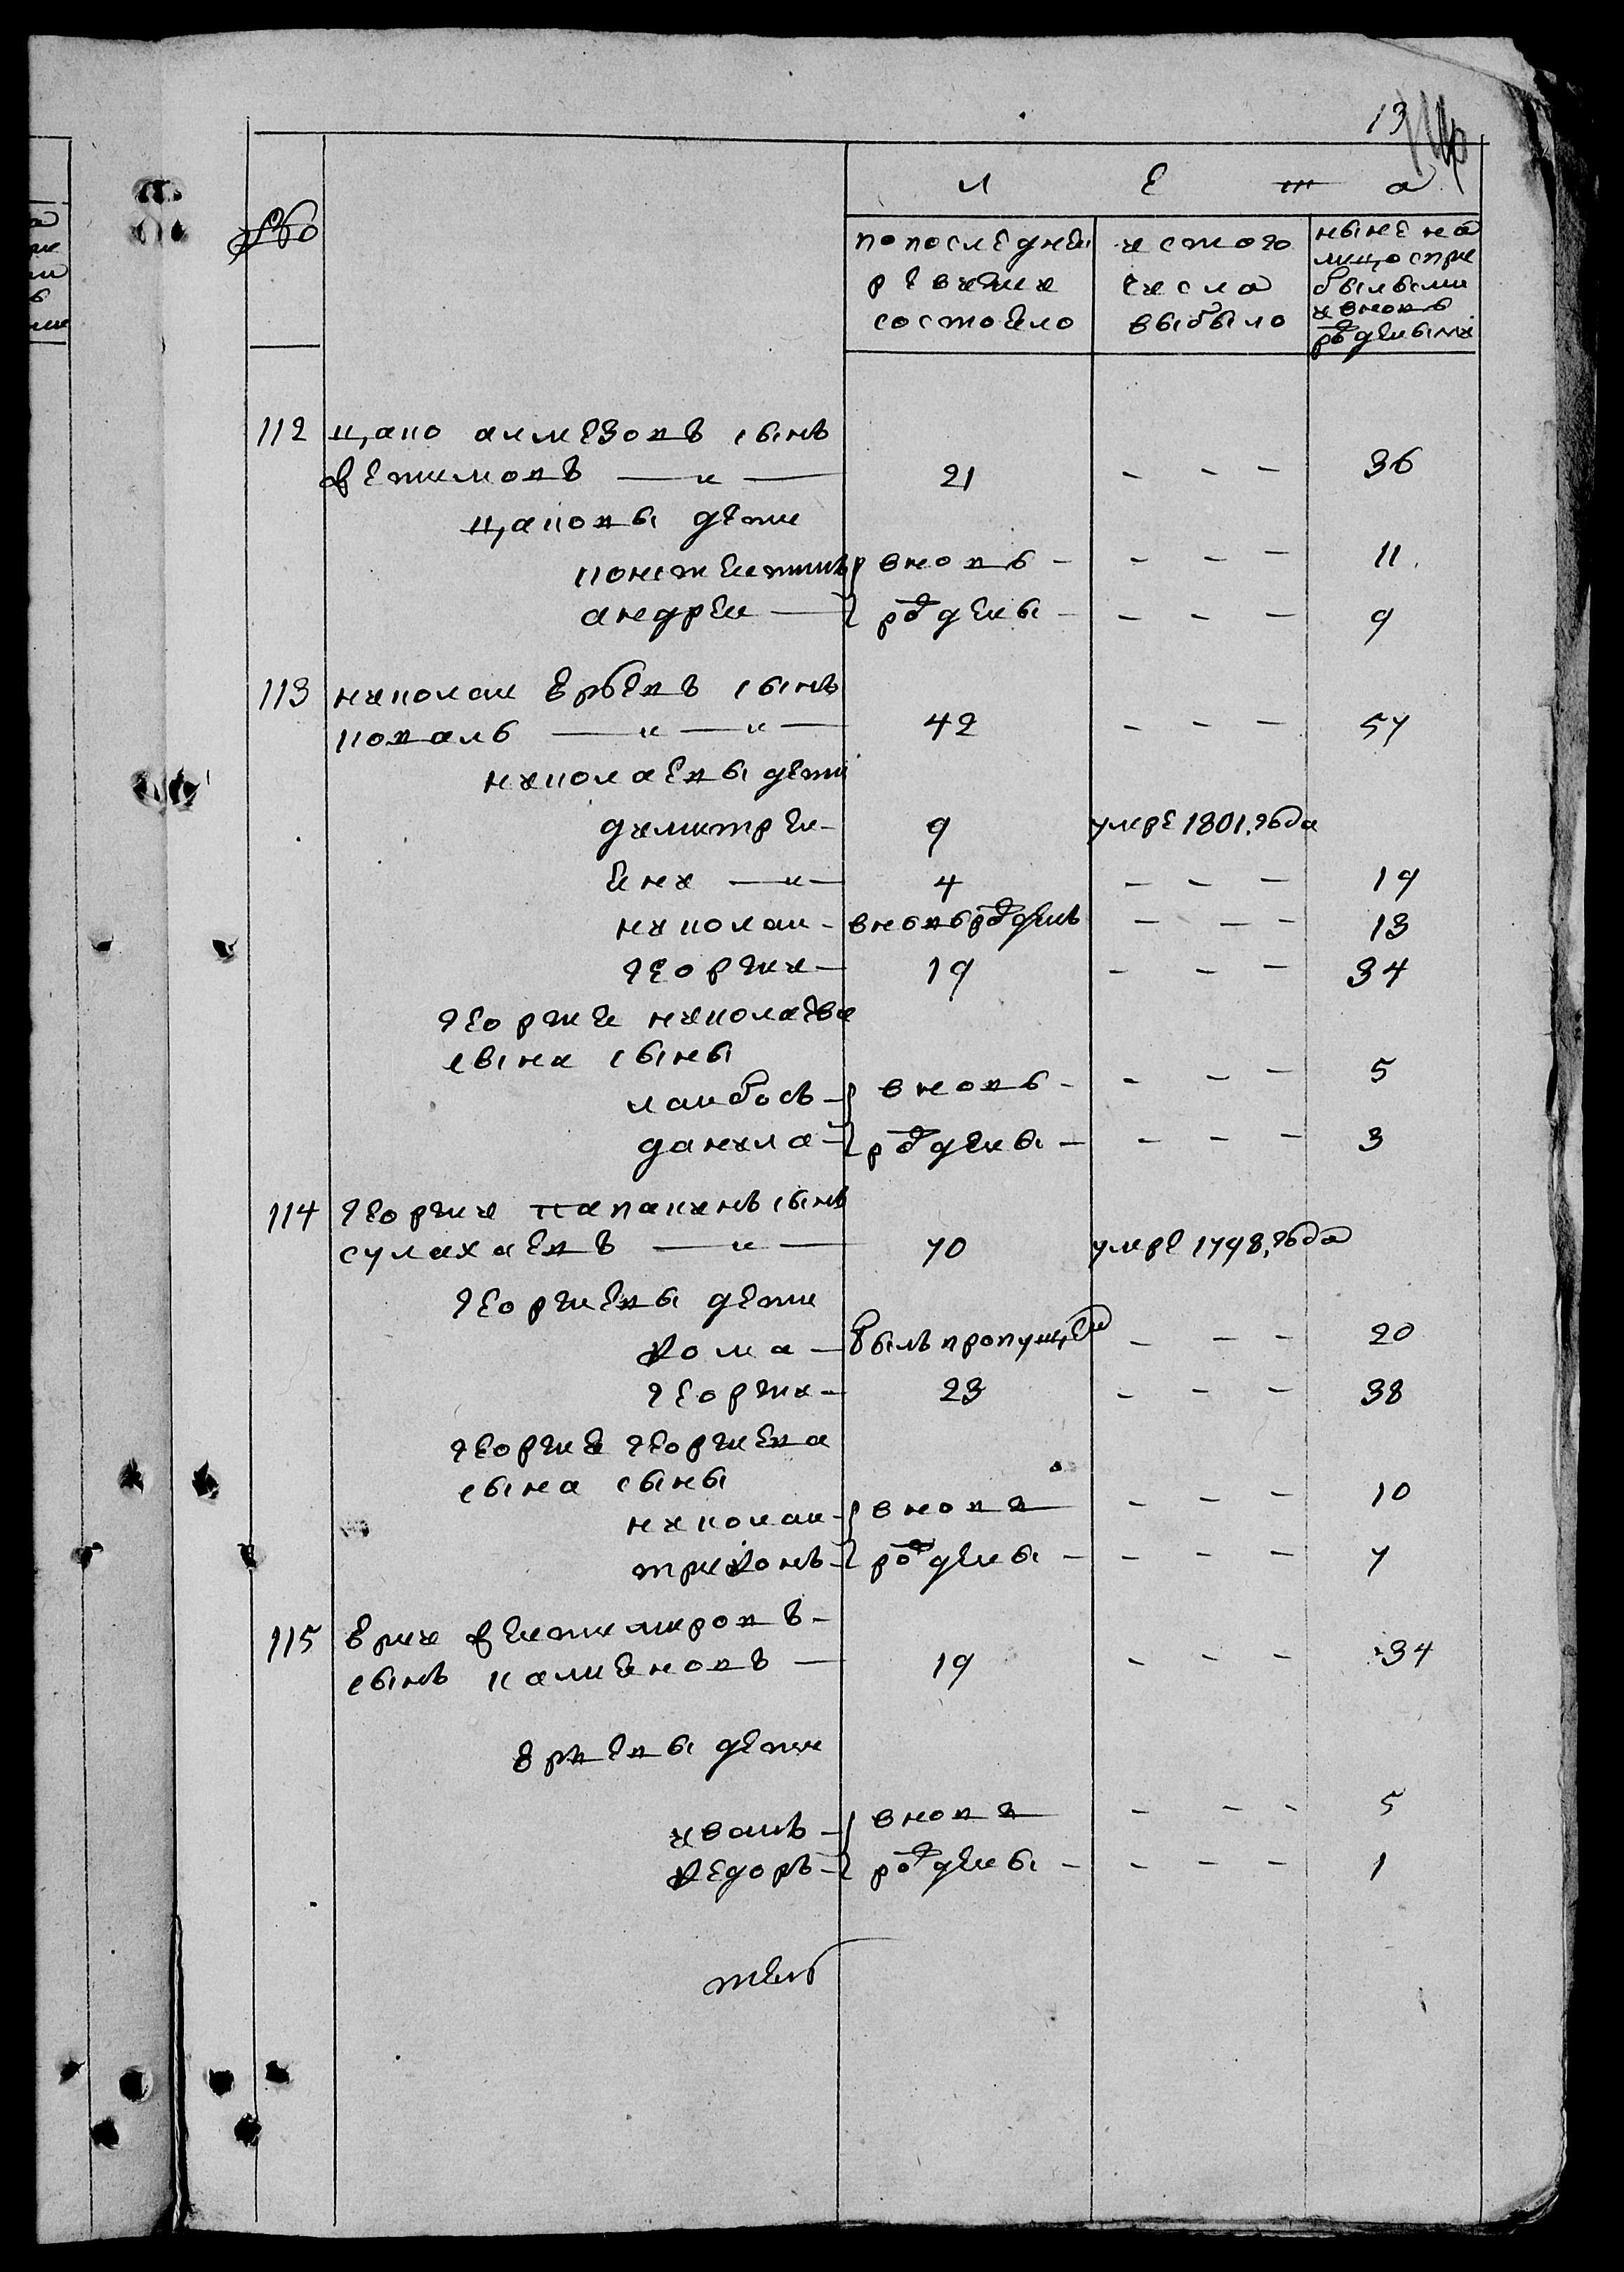 13
Л Е т а
№
по последней ревизии состояло
ис того числа выбыло
ныне на лицо с прибылыми и вновь рождеными
112 Цако алмезовъ сынъ
фетимовъ — " — 21 - - - 36
цаковы дети
констентинъ вновь - - - - 11
андрей — рождены - - - - 9
113 николай ербевъ сынъ
коваль — " — " — 42 - - - 57
николаевы дети
димитрей - 9 умре 1801, года
ени — " — 4 - - - 19
николай - вновь рожденъ - - - 13
георгии — 19 - - - 34
георгие николаева
сына сыны
ламбосъ вновь - - - - 5
данила рожденъи - - - - 3
114 георгии папакинъ сынъ
сулахаевъ — " — 70 умре 1798, года
георгиевы дети
Фома — былъ пропущен - - - 20
георги - 23 - - - 38
георгие георгиева
сына сыны
николай - вновь - - - 10
трифонъ - рождены - - - - 7
115 Ерии феитимировъ -
сынъ калиеновъ — 19 - - - 34
Ериевы дети
иванъ - вновь - - - 5
Федоръ - рождены - - - - 1